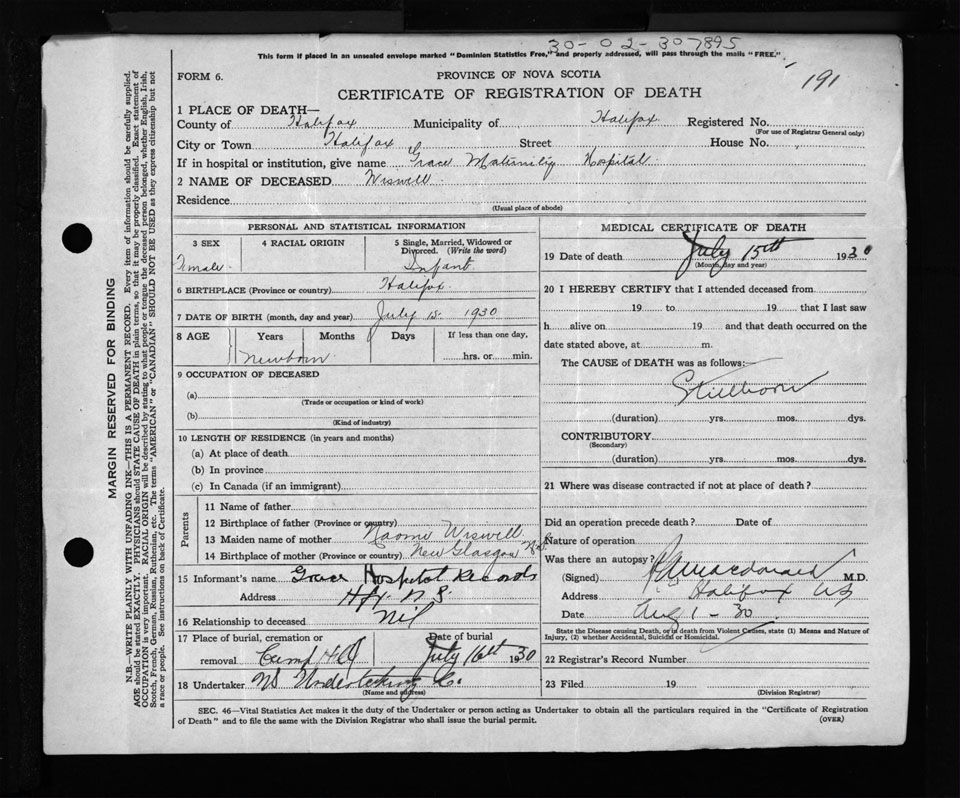 30-02-307895
This form if placed in an unsealed envelope marked "Dominion Statistics Free," and properly addressed, will pass through the mails "FREE."
FORM 6.
PROVINCE OF NOVA SCOTIA
191
CERTIFICATE OF REGISTRATION OF DEATH
1 PLACE OF DEATH—
County of Halifax Municipality of Halifax Registered No.
(For use of Registrar General only)
City or Town Halifax Street House No.
If in hospital or institution, give name Grace Maternity Hospital
2 NAME OF DECEASED Wiswell
Residence
(Usual place of abode)
PERSONAL AND STATISTICAL INFORMATION
3 SEX 4 RACIAL ORIGIN 5 Single, Married, Widowed or Divorced. (Write the word)
Female Infant
6 BIRTHPLACE (Province or country) Halifax
7 DATE OF BIRTH (month, day and year) July 15 1930
8 AGE Years Months Days If less than one day,
Newborn hrs. or min.
9 OCCUPATION OF DECEASED
(a)
(Trade or occupation or kind of work)
(b)
(Kind of industry)
10 LENGTH OF RESIDENCE (in years and months)
(a) At place of death
(b) In province
(c) In Canada (if an immigrant)
Parents
11 Name of father
12 Birthplace of father (Province or country)
13 Maiden name of mother Naomi Wiswell
14 Birthplace of mother (Province or country) New Glasgow N.S.
15 Informant's name Grace Hospital Records
Address Hfx N.S.
16 Relationship to deceased Nil
17 Place of burial, cremation or Date of burial
removal Camp Hill July 16th 1930
18 Undertaker NS Undertaking Co.
(Name and address)
MEDICAL CERTIFICATE OF DEATH
19 Date of death July 15th 1930
(Month, day and year)
20 I HEREBY CERTIFY that I attended deceased from
19 to 19 that I last saw
h alive on 19 and that death occurred on the
date stated above, at m.
The CAUSE of DEATH was as follows:—
Stillborn
(duration) yrs. mos. dys.
CONTRIBUTORY
(Secondary)
(duration) yrs. mos. dys.
21 Where was disease contracted if not at place of death?
Did an operation precede death? Date of
Nature of operation
Was there an autopsy?
(Signed) Macdonald M.D.
Address Halifax NS
Date Aug 1 - 30
State the Disease causing Death, or in death from Violent Causes, state (1) Means and Nature of Injury, (2) whether Accidental, Suicidal or Homicidal.
22 Registrar's Record Number
23 Filed 19
(Division Registrar)
SEC. 46—Vital Statistics Act makes it the duty of the Undertaker or person acting as Undertaker to obtain all the particulars required in the "Certificate of Registration
of Death" and to file the same with the Division Registrar who shall issue the burial permit.
(OVER)
MARGIN RESERVED FOR BINDING
N.B.—WRITE PLAINLY WITH UNFADING INK—THIS IS A PERMANENT RECORD. Every item of information should be carefully supplied.
AGE should be stated EXACTLY. PHYSICIANS should STATE CAUSE OF DEATH in plain terms, so that it may be properly classified. Exact statement of
OCCUPATION is very important. RACIAL ORIGIN will be described by stating to what people or tongue the deceased person belonged, whether English, Irish,
Scotch, French, German, Russian, Ruthenian, etc. The terms "AMERICAN" or "CANADIAN" SHOULD NOT BE USED as they express citizenship but not
a race or people. See instructions on back of Certificate.